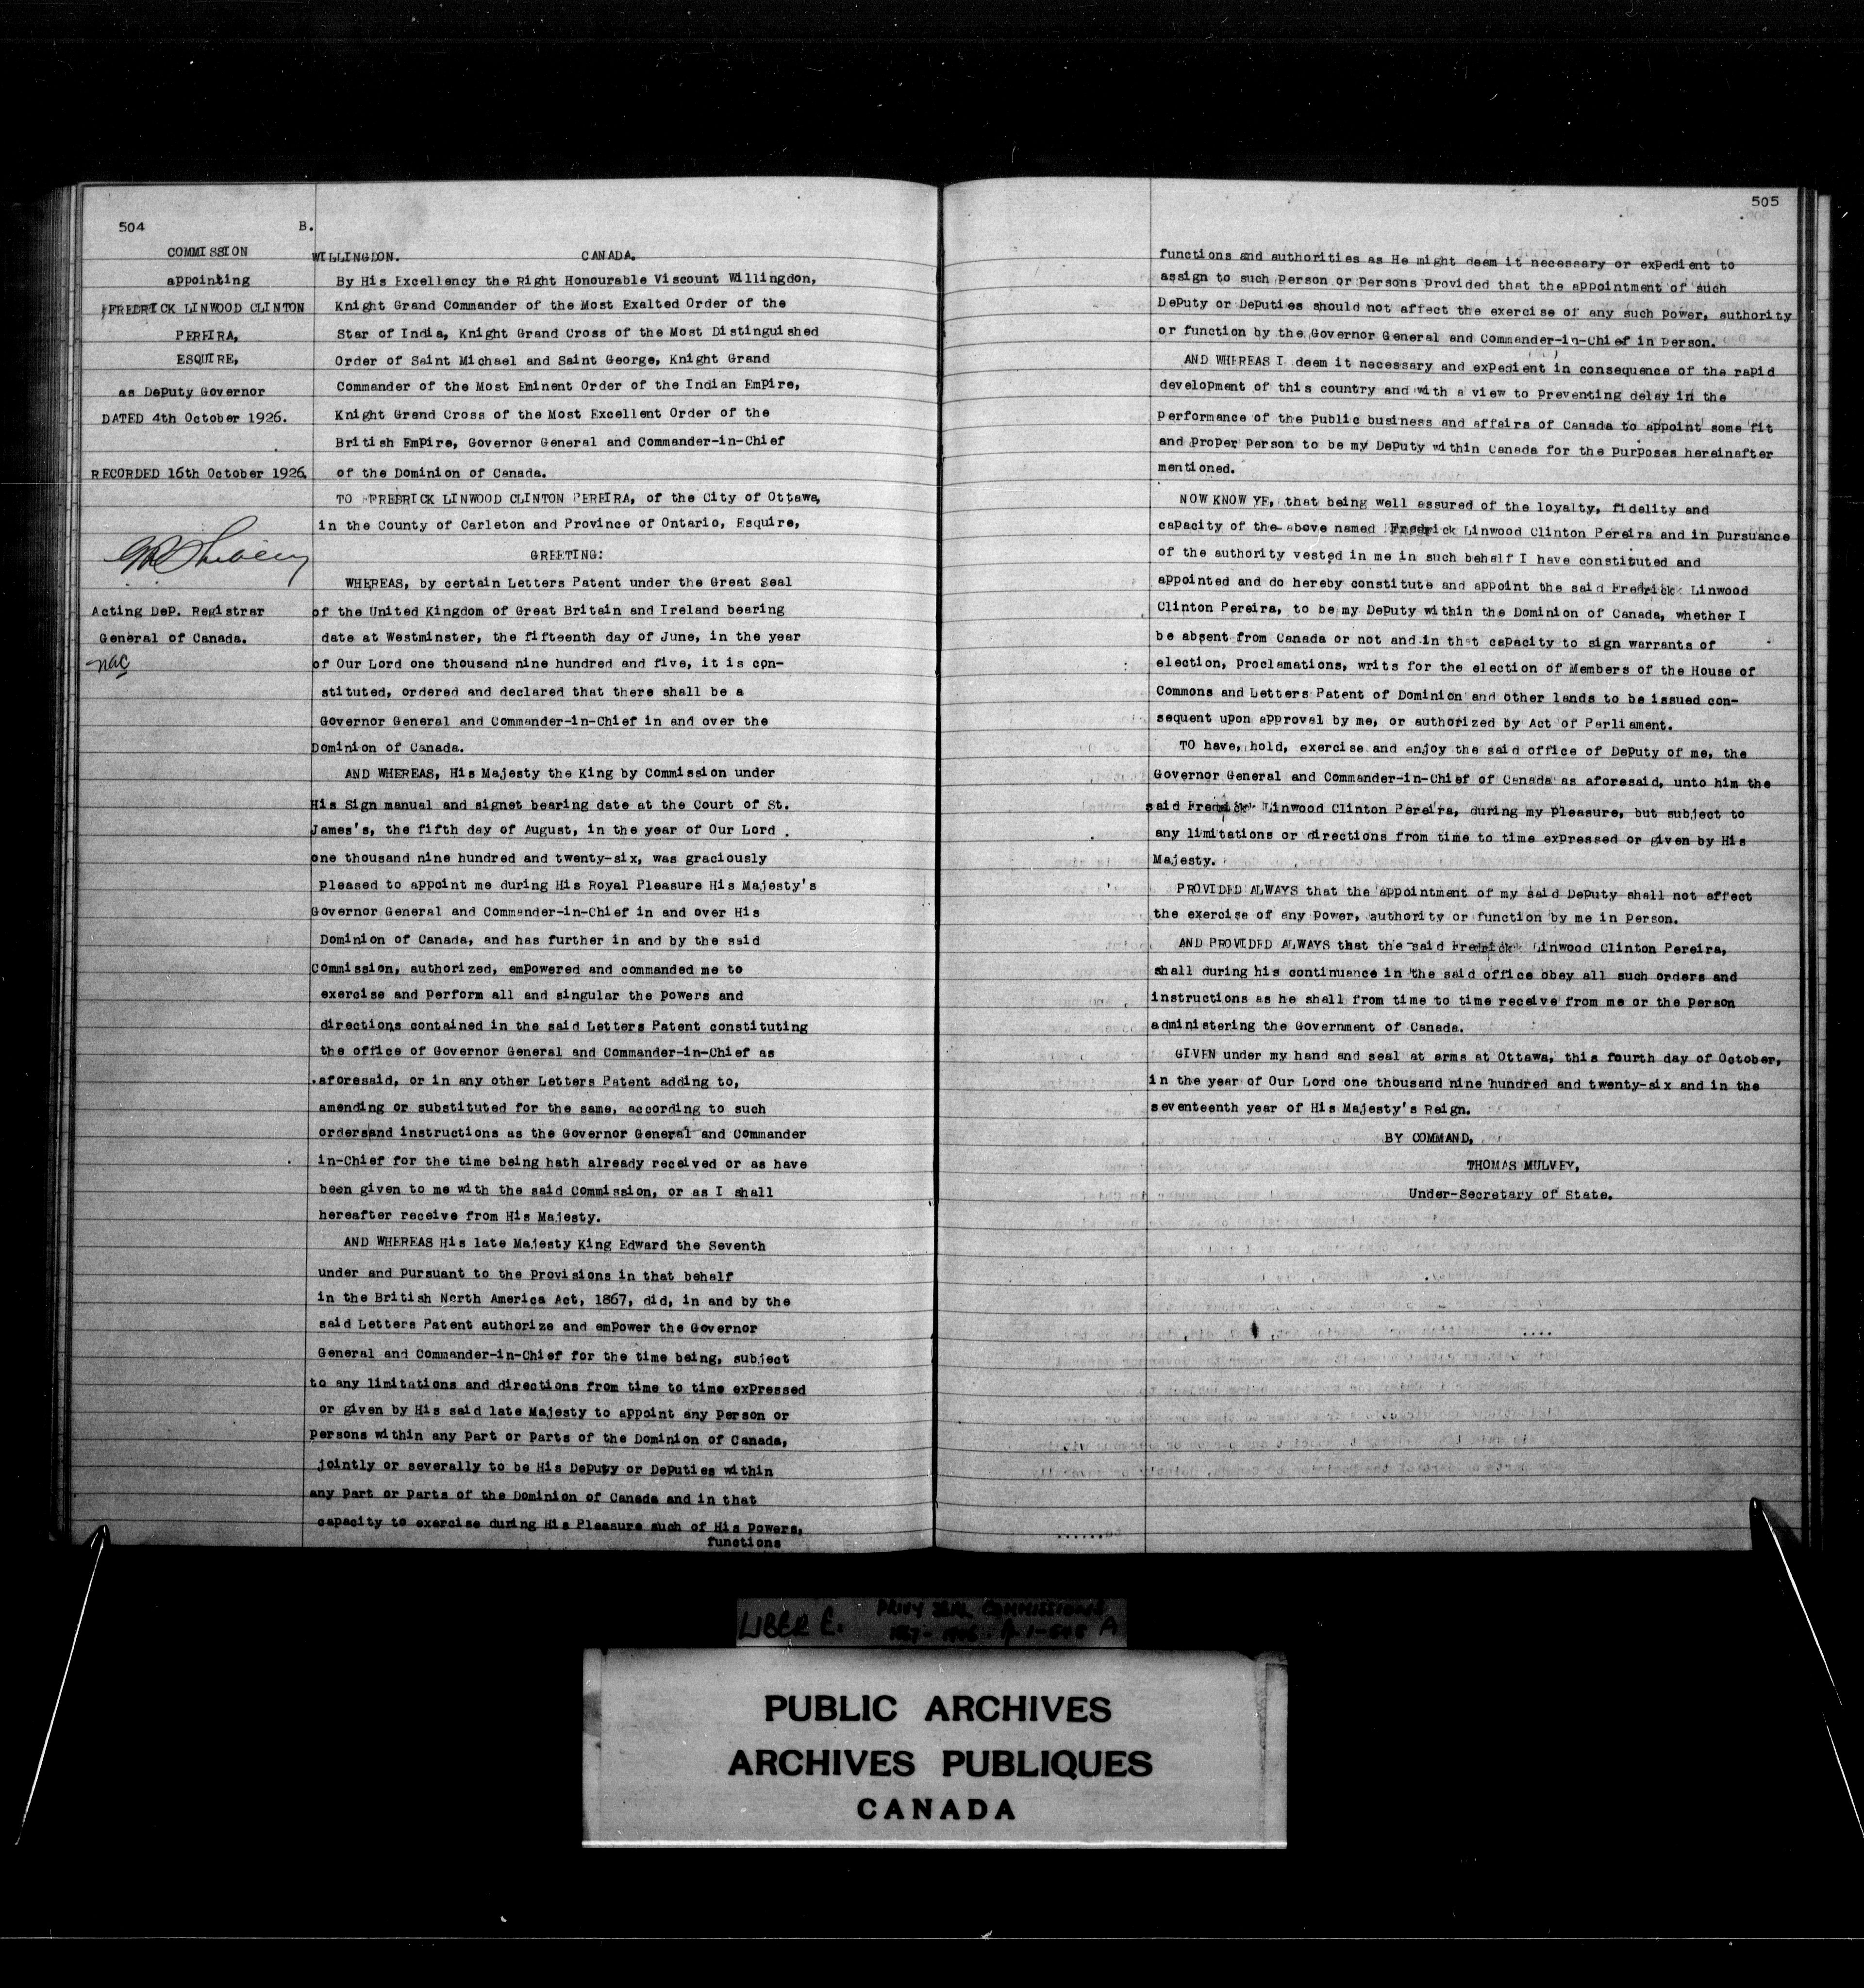 504
B.
COMMISSION
appointing
FREDRICK LINWOOD CLINTON
PEREIRA,
ESQUIRE,
as Deputy Governor
DATED 4th October 1926.
RECORDED 16th October 1926.
Acting Dep. Registrar
General of Canada.
nac
WILLINGDON. CANADA.
By His Excellency the Right Honourable Viscount Willingdon,
Knight Grand Commander of the Most Exalted Order of the
Star of India, Knight Grand Cross of the Most Distinguished
Order of Saint Michael and Saint George, Knight Grand
Commander of the Most Eminent Order of the Indian Empire,
Knight Grand Cross of the Most Excellent Order of the
British Empire, Governor General and Commander-in-Chief
of the Dominion of Canada.
TO FREDRICK LINWOOD CLINTON PEREIRA, of the City of Ottawa,
in the County of Carleton and Province of Ontario, Esquire,
GREETING:
WHEREAS, by certain Letters Patent under the Great Seal
of the United Kingdom of Great Britain and Ireland bearing
date at Westminster, the fifteenth day of June, in the year
of Our Lord one thousand nine hundred and five, it is con-
stituted, ordered and declared that there shall be a
Governor General and Commander-in-Chief in and over the
Dominion of Canada.
AND WHEREAS, His Majesty the King by Commission under
His Sign manual and signet bearing date at the Court of St.
James's, the fifth day of August, in the year of Our Lord
one thousand nine hundred and twenty-six, was graciously
pleased to appoint me during His Royal Pleasure His Majesty's
Governor General and Commander-in-Chief in and over His
Dominion of Canada, and has further in and by the said
Commission, authorized, empowered and commanded me to
exercise and perform all and singular the powers and
directions contained in the said Letters Patent constituting
the office of Governor General and Commander-in-Chief as
aforesaid, or in any other Letters Patent adding to,
amending or substituted for the same, according to such
ordersand instructions as the Governor General and Commander
in-Chief for the time being hath already received or as have
been given to me with the said Commission, or as I shall
hereafter receive from His Majesty.
AND WHEREAS His late Majesty King Edward the Seventh
under and pursuant to the provisions in that behalf
in the British North America Act, 1867, did, in and by the
said Letters Patent authorize and empower the Governor
General and Commander-in-Chief for the time being, subject
to any limitations and directions from time to time expressed
or given by His said late Majesty to appoint any person or
persons within any part or parts of the Dominion of Canada,
jointly or severally to be His Deputy or Deputies within
any part or parts of the Dominion of Canada and in that
capacity to exercise during His Pleasure such of His Powers,
functions
505
functions and authorities as He might deem it necessary or expedient to
assign to such Person or Persons provided that the appointment of such
Deputy or Deputies should not affect the exercise of any such power, authority
or function by the Governor General and Commander-in-Chief in Person.
AND WHEREAS I deem it necessary and expedient in consequence of the rapid
development of this country and with a view to preventing delay in the
performance of the public business and affairs of Canada to appoint some fit
and proper person to be my Deputy within Canada for the purposes hereinafter
mentioned.
NOW KNOW YE, that being well assured of the loyalty, fidelity and
capacity of the above named Fredrick Linwood Clinton Pereira and in pursuance
of the authority vested in me in such behalf I have constituted and
appointed and do hereby constitute and appoint the said Fredrick Linwood
Clinton Pereira, to be my Deputy within the Dominion of Canada, whether I
be absent from Canada or not and in that capacity to sign warrants of
election, proclamations, writs for the election of Members of the House of
Commons and Letters Patent of Dominion and other lands to be issued con-
sequent upon approval by me, or authorized by Act of Parliament.
TO have, hold, exercise and enjoy the said office of Deputy of me, the
Governor General and Commander-in-Chief of Canada as aforesaid, unto him the
said Fredrick Linwood Clinton Pereira, during my pleasure, but subject to
any limitations or directions from time to time expressed or given by His
Majesty.
PROVIDED ALWAYS that the appointment of my said Deputy shall not affect
the exercise of any power, authority or function by me in person.
AND PROVIDED ALWAYS that the said Fredrick Linwood Clinton Pereira,
shall during his continuance in the said office obey all such orders and
instructions as he shall from time to time receive from me or the person
administering the Government of Canada.
GIVEN under my hand and seal at arms at Ottawa, this fourth day of October,
in the year of Our Lord one thousand nine hundred and twenty-six and in the
seventeenth year of His Majesty's Reign.
BY COMMAND,
THOMAS MULVEY,
Under-Secretary of State.
LIBER E. PRIVY SEAL COMMISSIONS
A
PUBLIC ARCHIVES
ARCHIVES PUBLIQUES
CANADA